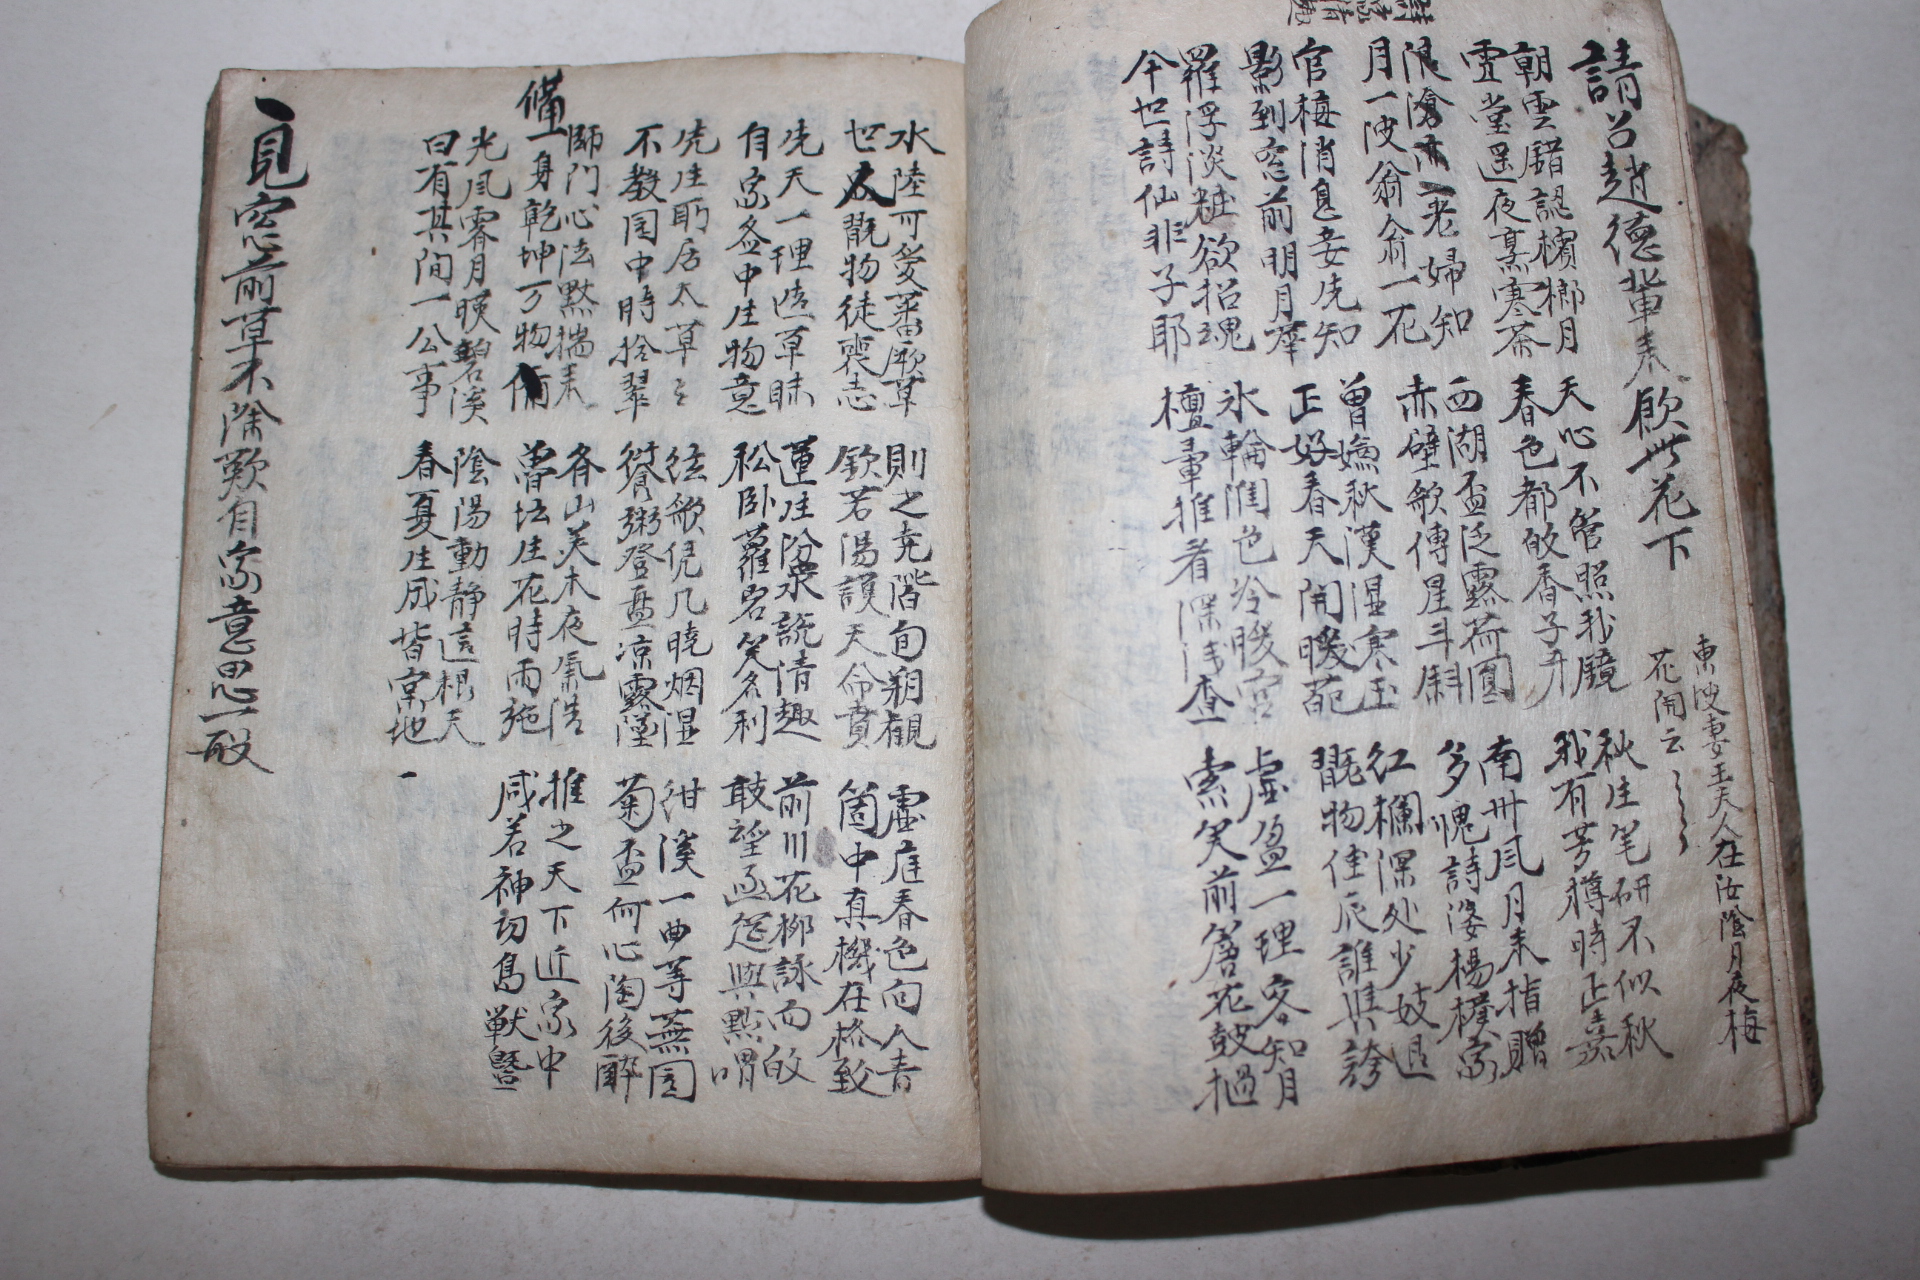 請召趙德軰来飮此花下
東坡妻王夫人在汝陰月夜梅
花開云
朝雲錯認檳榔月
雪堂遥夜烹寒茶
天心不管照我鏡
春色都放香子丹
秋庄笔硏不似秋
我有芳樽時正嘉
限滄亦一老婦知
月一波翁翁一花
西湖盃泛露荷圓
赤壁歌傳星斗斜
南州风月未指贈
多愧詩婆楊樸家
官梅消息妾先知
影到窓前明月華
曾嫵秋漢湿寒玉
正好春天開暖葩
紅欄深处少妓退
翫物佳辰誰與誇
羅浮淡粧欲招魂
今世詩仙非子耶
氷輪開色冷暖宮
檀暈推看深浅查
虛盈一理客知月
索笑前簷花鼓撾
水陸可愛蕃厥草
世人翫物徒喪志
則之尭階旬朔観
欽若湯謨天命賁
虛庭春色向人青
箇中真機在格致
先天一理造草昧
自家盆中生物意
蓮庄汾水説情趣
松卧蘿岩笑名利
前川花柳詠而放
敢望函筵與點喟
先生所居太草々
不教園中時拾翠
絃歌凭几晓烟湿
餐粥登盘凉露墜
紺溪一曲等蕪園
菊盃何心陶後酔
師門心法黙揣来
一身乾坤万物備
備
各山美木夜氣浩
魯坛生花時雨施
推之天下近家中
咸若神功鳥獣曁
光风霽月暎碧溪
曰有其间一公事
陰陽動静這根天
春夏生成皆棠地
一見窓前草不除歎自家意思一般